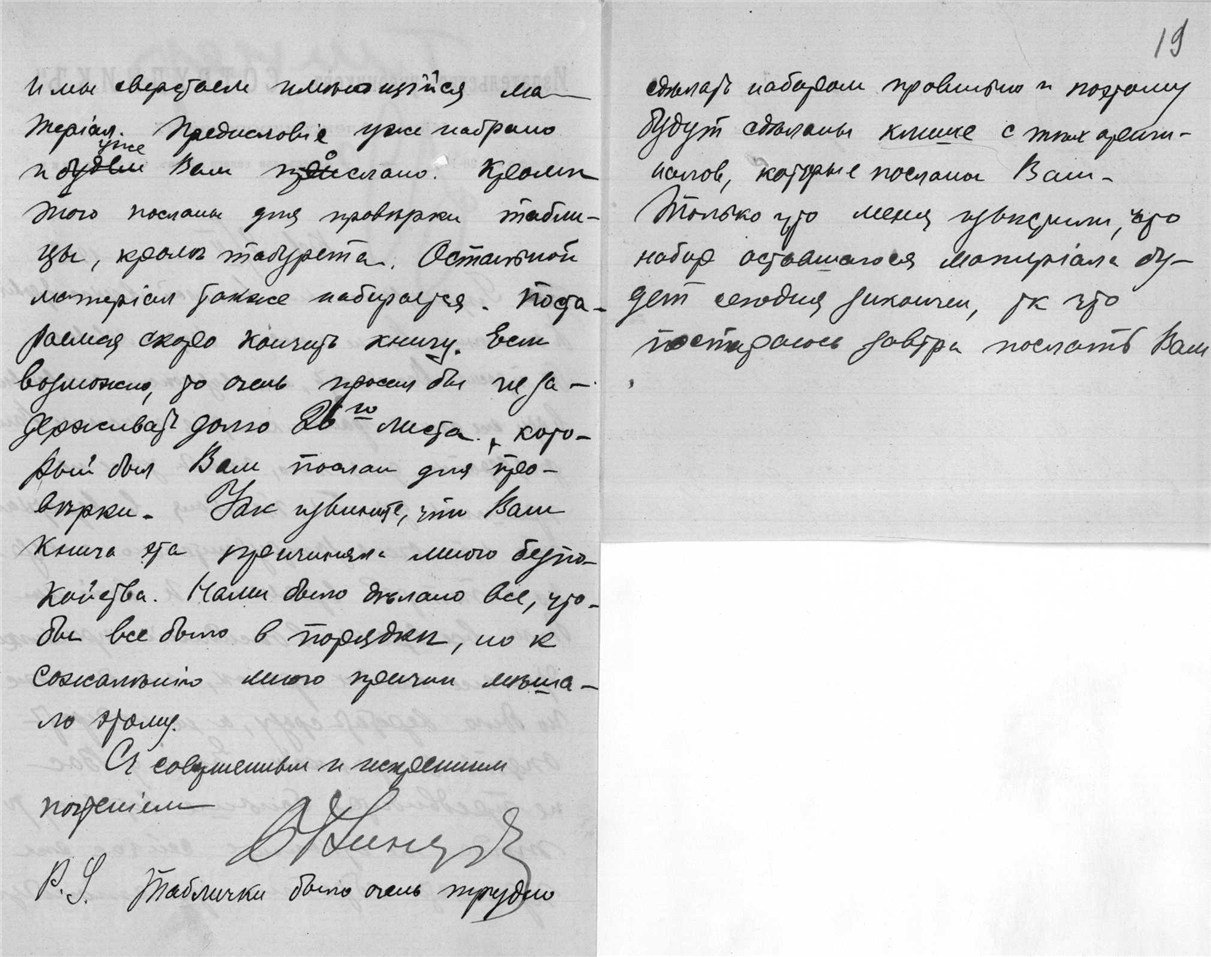 и мы сверстаем имѣющійся ма-
теріал. Предисловіе уже набрано
и будем уже Вам послано. Кромѣ
этого посланы для провѣрки табли-
цы, кромѣ табурета. Остальной
материал также набирается. Поста-
раемся скоро кончить книгу. Если
возможно, то очень просил бы не за-
держивать долго 26го листа, кото-
рый был Вам послан для про-
вѣрки. Так извините, что Вам
книга эта причинила много безпо-
койства. Нами было дѣлано все, что-
бы все было в порядкѣ, но к
сожалѣнію много причин мѣша-
ло этому.
Съ совершенным и искренним
почтеніем
P.S. Таблички было очень трудно
19
сдѣлать набором правильно и поэтому
будут сдѣланы клише с тѣх ориги-
налов, которые посланы Вам.
Только что меня извѣстили, что
набор оставшагося матеріала бу-
дет сегодня закончен, тк что
постараюсь завтра послать Вам